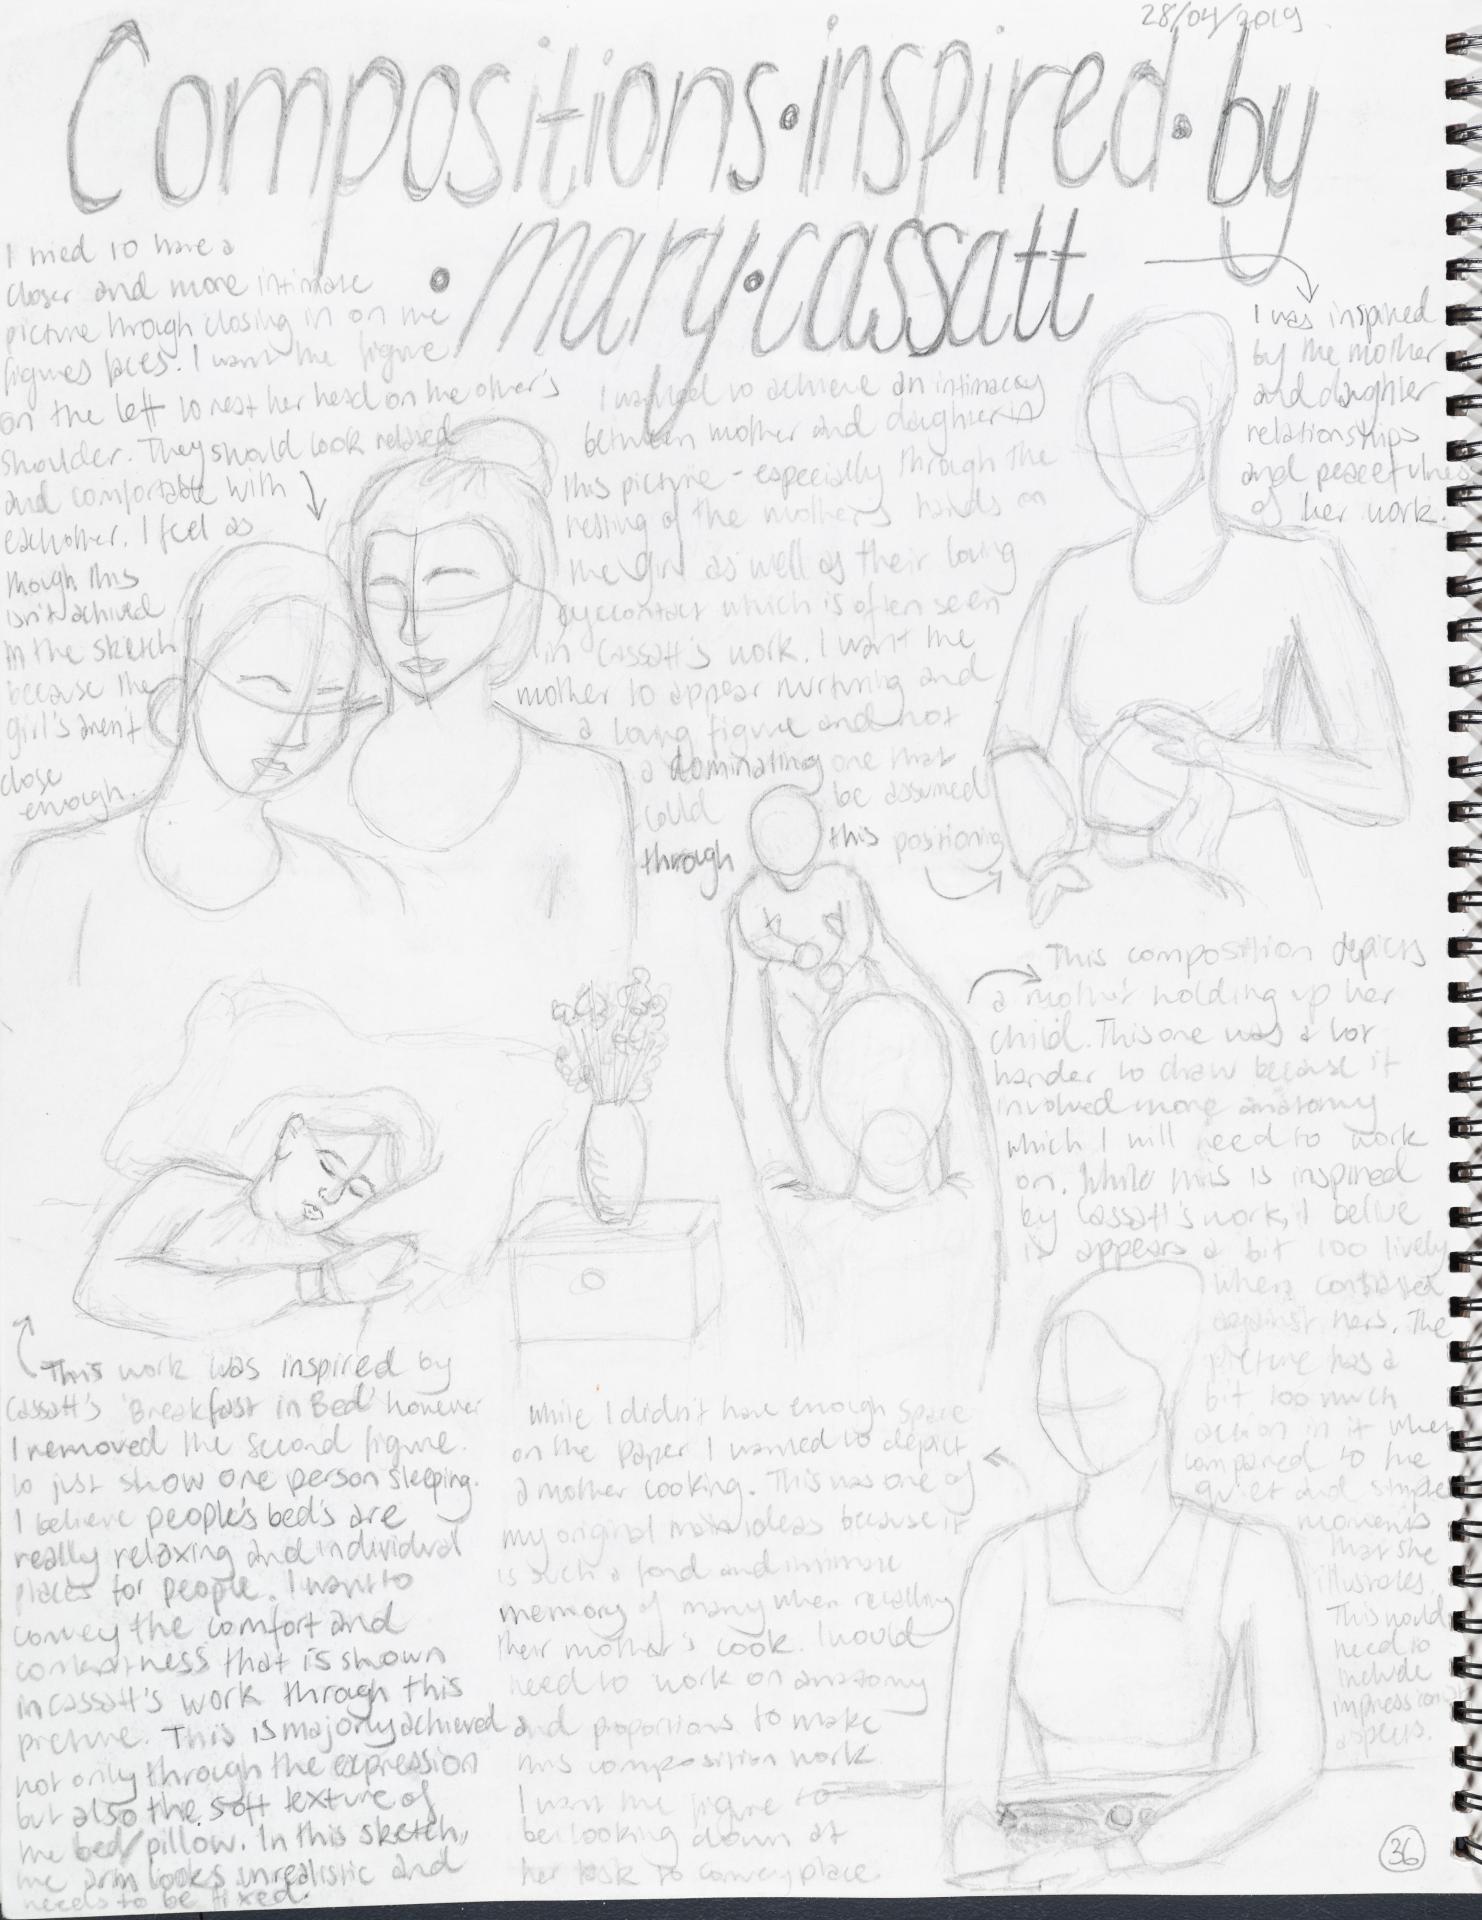 28/04/2019
Compositions·inspired·by
·mary·cassatt
I tried to have a
closer and more intimate
picture through closing in on the
figures faces. I want the figure
on the left to rest her head on the other's
shoulder. They should look relaxed
and comfortable with
eachother. I feel as
though this
isn't achived
in the sketch
because the
girl's aren't
close
enough.
I wanted to achieve an intimacy
between mother and daughter in
this picture - especially through the
resting of the mother's hands on
the girl as well as their loving
eyecontact which is often seen
in Cassatt's work. I want the
mother to appear nurturing and
a loving figure and not
a dominating one that
could be assumed
through this positioning
I was inspired
by the mother
and daughter
relationships
and peacefulness
of her work.
This composition depicts
a mother holding up her
child. This one was a lot
harder to draw because it
involved more anatomy
which I will need to work
on. While this is inspired
by Cassatt's work, I belive
it appears a bit too lively
when contrasted
against hers. The
picture has a
bit too much
action in it when
compared to the
quiet and simple
moments
that she
illustrates.
This would
need to
include
impressionist
aspects.
This work was inspired by
Cassatt's 'Breakfast in Bed' however
I removed the second figure.
to just show one person sleeping.
I believe people's bed's are
really relaxing and individual
places for people. I want to
convey the comfort and
that is shown
in Cassatt's work through this
picture. This is majorly achieved
not only through the expression
but also the soft texture of
the bed/pillow. In this sketch,
the arm looks unrealistic and
needs to be fixed.
While I didn't have enough space
on the paper I wanted to depict
a mother cooking. This was one of
my original main ideas because it
is such a fond and intimate
memory of many when recalling
their mother's cook. I would
need to work on anatomy
and proportions to make
this composition work.
I want the figure to
be looking down at
her task to convey place.
36